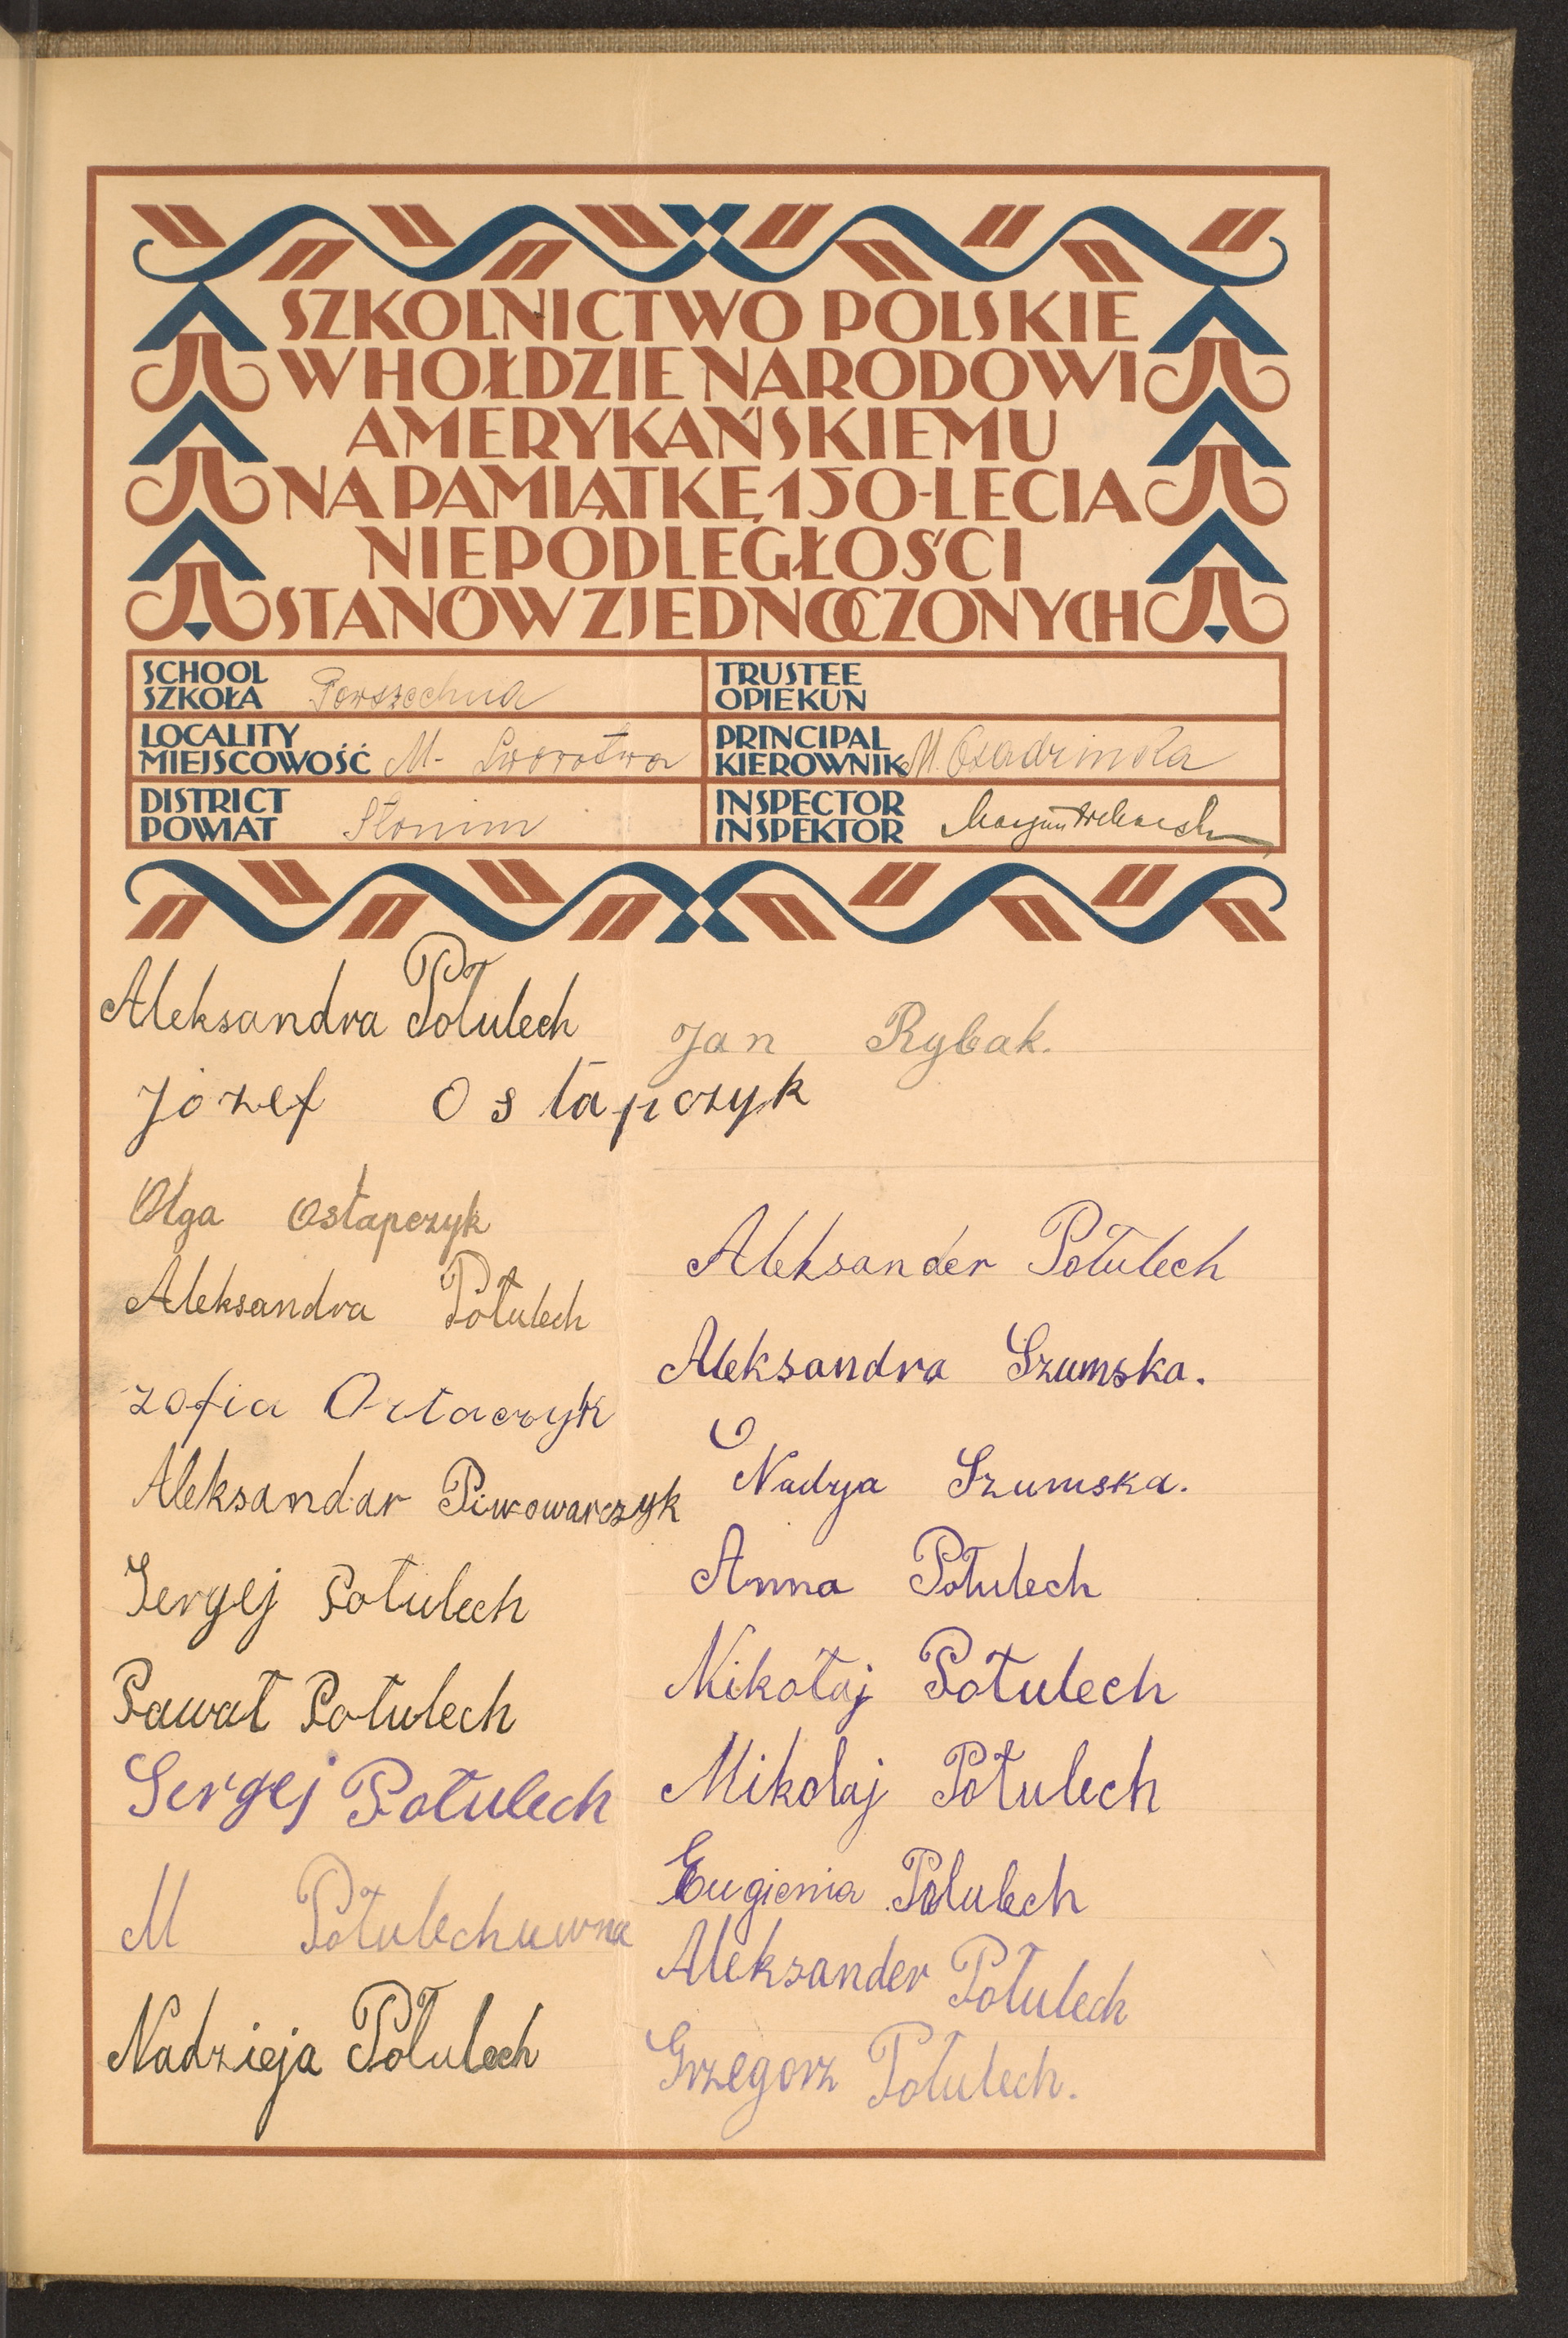 SZKOLNICTWO POLSKIE
W HOŁDZIE NARODOWI
AMERYKAŃSKIEMU
NA PAMIĄTKĘ 150-LECIA
NIEPODLEGŁOŚCI
STANÓW ZJEDNOCZONYCH
SCHOOL
SZKOŁA Powszechna
LOCALITY
MIEJSCOWOŚĆ M-
DISTRICT
POWIAT Słonim
TRUSTEE
OPIEKUN
PRINCIPAL
KIEROWNIK M. Osadzinska
INSPECTOR
INSPEKTOR
Aleksandra Połulech
Józef Ostapczyk
Olga Ostapczyk
Aleksandra Połulech
Zofia
Aleksandar Piwowarczyk
Sergej Połulech
Pawał Połulech
Sergej Połulech
M Połulechuwna
Nadzieja Połulech
Jan Rybak.
Aleksander Połulech
Aleksandra Szumska.
Nadzja Szumska.
Anna Połulech
Nikołaj Połulech
Mikolaj Połulech
Eugienia Polulech
Aleksander Połulech
Grzegorz Połulech.